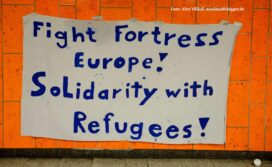 Foto: Alex Völkel, nordstadtblogger.de
Fight Fortress
Europe!
Solidarity with
Refugees!